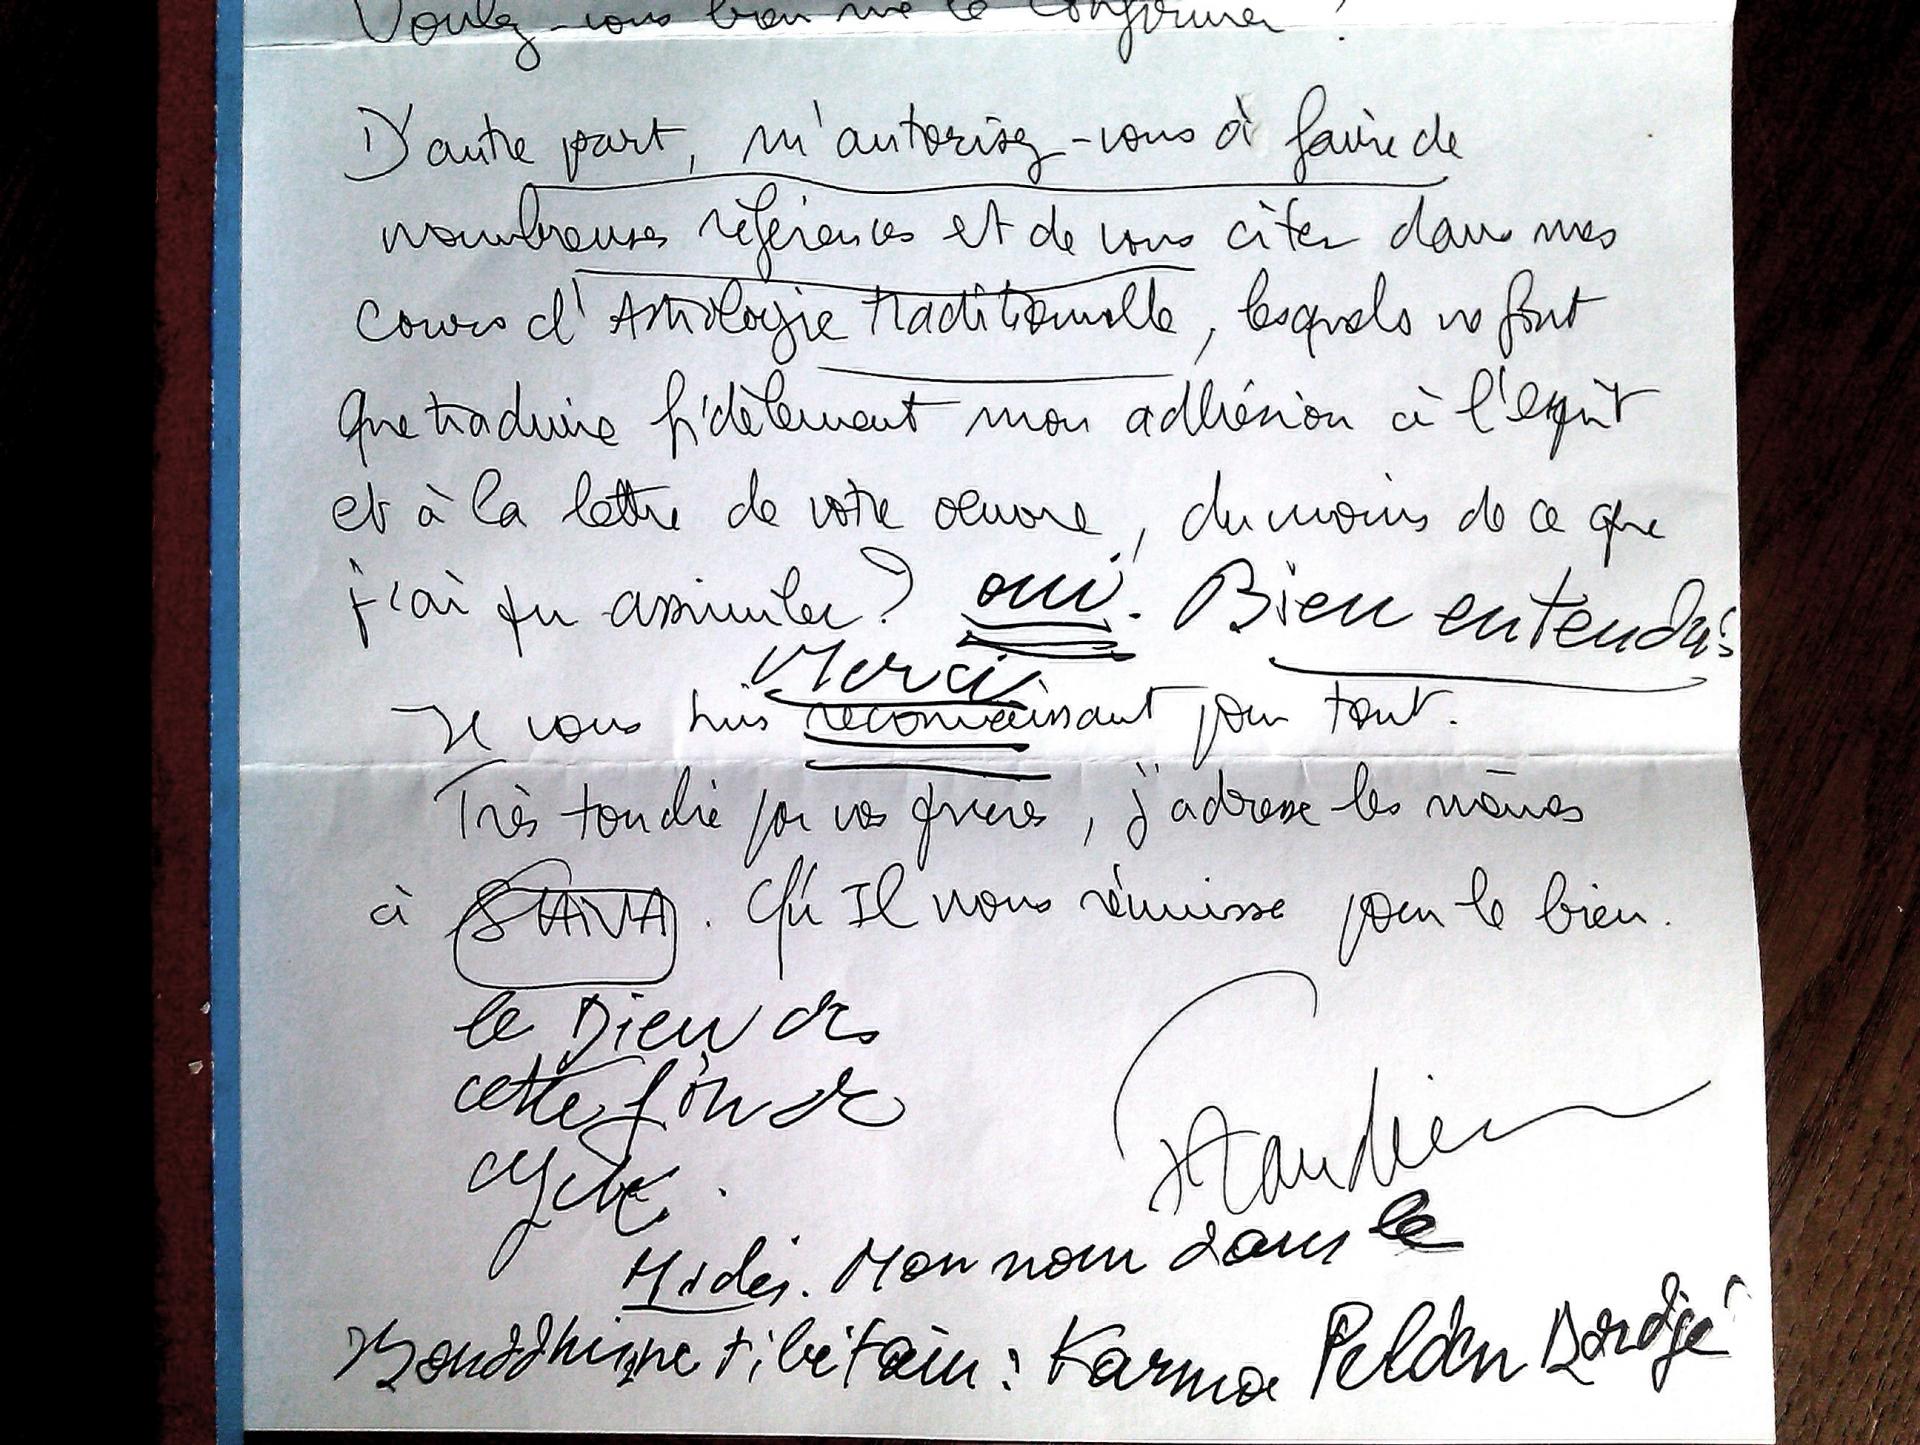 Voulez-vous bien me le confirmer ?
D'autre part, m'autorisez-vous à faire de
nombreuses références et de vous citer dans mes
cours d'Astrologie traditionnelle, lesquels ne font
que traduire fidèlement mon adhésion à l'esprit
et à la lettre de votre œuvre, du moins de ce que
j'ai pu assimiler ? oui. Bien entendu !
Merci
Je vous suis reconnaissant pour tout.
Très touché par vos prières, j'adresse les mêmes
à SHIVA. Qu'Il nous réunisse pour le bien.
le Dieu de
cette fin de
cycle.
Mon nom dans le
Bouddhisme tibétain : Karma Peldën Dordjé